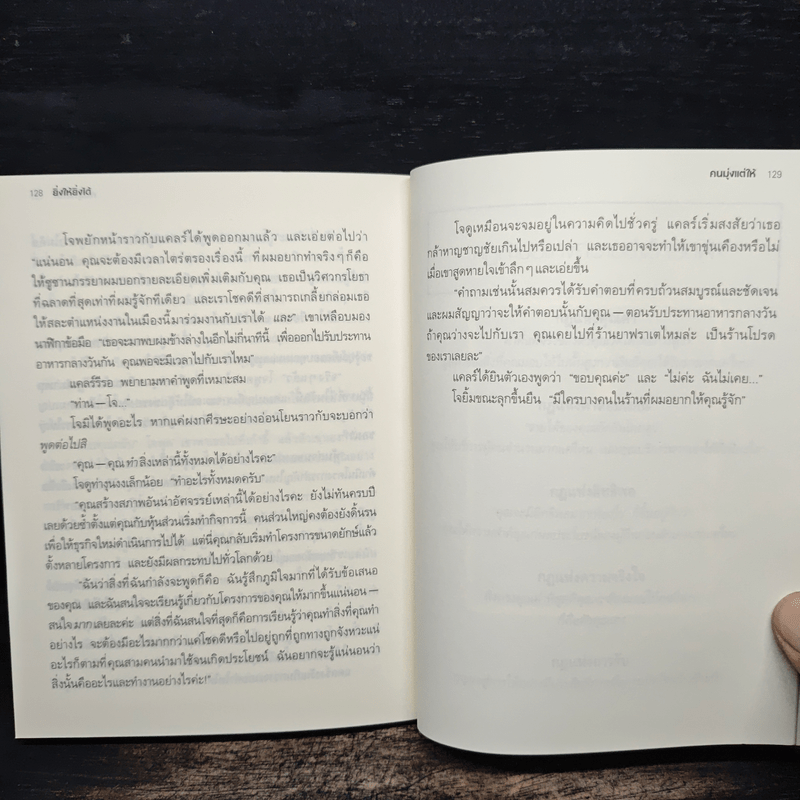 128 ยิ่งให้ยิ่งได้
โจพยักหน้าราวกับแคลร์ได้พูดออกมาแล้ว และเอ่ยต่อไปว่า
“แน่นอน คุณจะต้องมีเวลาไตร่ตรองเรื่องนี้ ที่ผมอยากทำจริงๆ ก็คือ
ให้ซูซานภรรยาผมบอกรายละเอียดเพิ่มเติมกับคุณ เธอเป็นวิศวกรโยธา
ที่ฉลาดที่สุดเท่าที่ผมรู้จักทีเดียว และเราโชคดีที่สามารถเกลี้ยกล่อมเธอ
ให้สละตำแหน่งงานในเมืองนี้มาร่วมงานกับเราได้ และ” เขาเหลือบมอง
นาฬิกาข้อมือ “เธอจะมาพบผมข้างล่างในอีกไม่กี่นาทีนี้ เพื่อออกไปรับประทาน
อาหารกลางวันกัน คุณพอจะมีเวลาไปกับเราไหม”
แคลร์รีรอ พยายามหาคำพูดที่เหมาะสม
“ท่าน — โจ...”
โจมิได้พูดอะไร หากแค่ผงกศีรษะอย่างอ่อนโยนราวกับจะบอกว่า
พูดต่อไปสิ
“คุณ — คุณทำสิ่งเหล่านี้ทั้งหมดได้อย่างไรคะ”
โจดูท่างุนงงเล็กน้อย “ทำอะไรทั้งหมดครับ”
“คุณสร้างสภาพอันน่าอัศจรรย์เหล่านี้ได้อย่างไรคะ ยังไม่ทันครบปี
เลยด้วยซ้ำตั้งแต่คุณกับหุ้นส่วนเริ่มทำกิจการนี้ คนส่วนใหญ่คงต้องยังดิ้นรน
เพื่อให้ธุรกิจใหม่ดำเนินการไปได้ แต่นี่คุณกลับเริ่มทำโครงการขนาดยักษ์แล้ว
ตั้งหลายโครงการ และยังมีผลกระทบไปทั่วโลกด้วย
“ฉันว่าสิ่งที่ฉันกำลังจะพูดก็คือ ฉันรู้สึกภูมิใจมากที่ได้รับข้อเสนอ
ของคุณ และฉันสนใจจะเรียนรู้เกี่ยวกับโครงการของคุณให้มากขึ้นแน่นอน —
สนใจมากเลยละค่ะ แต่สิ่งที่ฉันสนใจที่สุดก็คือการเรียนรู้ว่าคุณทำสิ่งที่คุณทำ
อย่างไร จะต้องมีอะไรมากกว่าแค่โชคดีหรือไปอยู่ถูกที่ถูกทางถูกจังหวะแน่
อะไรก็ตามที่คุณสามคนนำมาใช้จนเกิดประโยชน์ ฉันอยากจะรู้แน่นอนว่า
สิ่งนั้นคืออะไรและทำงานอย่างไรค่ะ!”
คนมุ่งแต่ให้ 129
โจดูเหมือนจะจมอยู่ในความคิดไปชั่วครู่ แคลร์เริ่มสงสัยว่าเธอ
กล้าหาญชาญชัยเกินไปหรือเปล่า และเธออาจจะทำให้เขาขุ่นเคืองหรือไม่
เมื่อเขาสูดหายใจเข้าลึกๆ และเอ่ยขึ้น
“คำถามเช่นนั้นสมควรได้รับคำตอบที่ครบถ้วนสมบูรณ์และชัดเจน
และผมสัญญาว่าจะให้คำตอบนั้นกับคุณ — ตอนรับประทานอาหารกลางวัน
ถ้าคุณว่างจะไปกับเรา คุณเคยไปที่ร้านยาฟราเตไหมล่ะ เป็นร้านโปรด
ของเราเลยละ”
แคลร์ได้ยินตัวเองพูดว่า “ขอบคุณค่ะ” และ “ไม่ค่ะ ฉันไม่เคย...”
โจยิ้มขณะลุกขึ้นยืน “มีใครบางคนในร้านที่ผมอยากให้คุณรู้จัก”